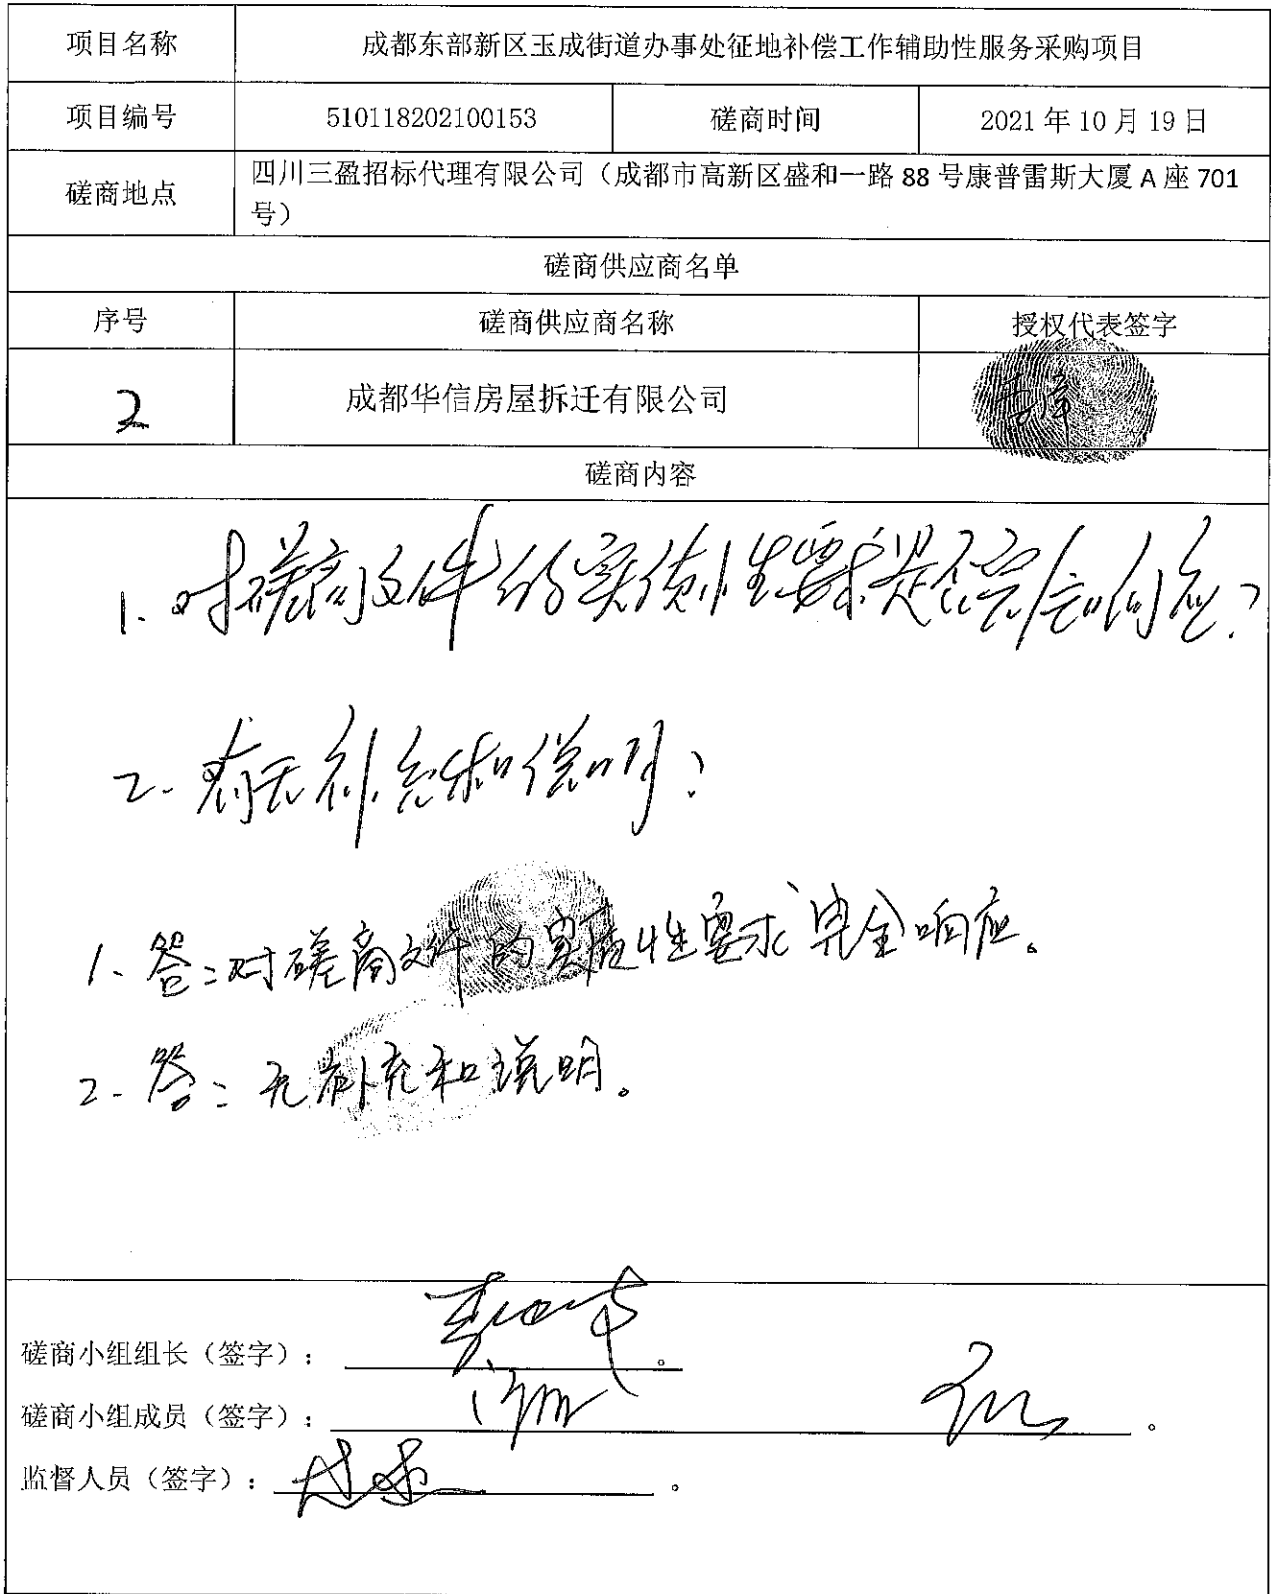 项目名称 成都东部新区玉成街道办事处征地补偿工作辅助性服务采购项目
项目编号 510118202100153 磋商时间 2021年10月19日
磋商地点 四川三盈招标代理有限公司（成都市高新区盛和一路88号康普雷斯大厦A座701
号）
磋商供应商名单
序号 磋商供应商名称 授权代表签字
2 成都华信房屋拆迁有限公司
磋商内容
1. 对磋商文件的实质性要求是否完全响应？
2. 有无补充和说明？
1. 答：对磋商文件的实质性要求完全响应。
2. 答：无补充和说明。
磋商小组组长（签字）： 。
磋商小组成员（签字）： 。
监督人员（签字）： 。